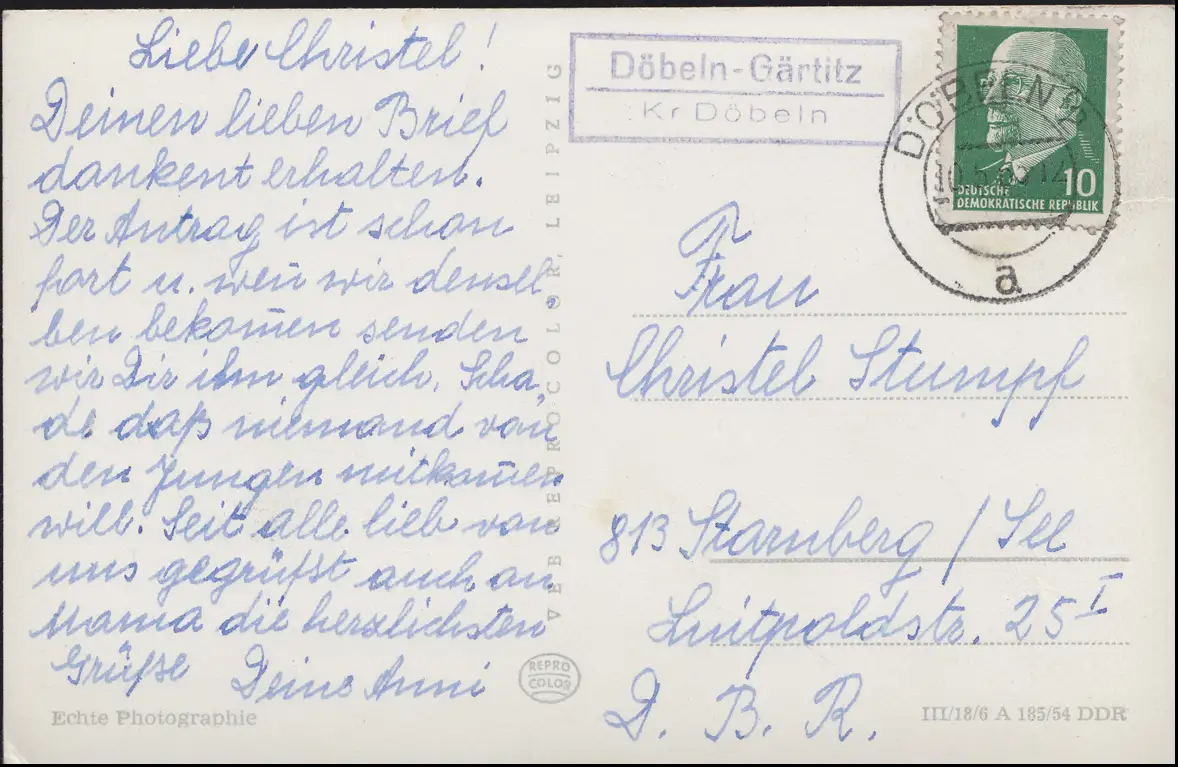 Liebe Christel!
Deinen lieben Brief
dankent erhalten.
Der Antrag ist schon
fort u. weñ wir densel„
ben bekom̄en senden
wir Dir ihn gleich. Scha„
de daß niemand von
den Jungen mitkom̄en
will. Seit alle lieb von
uns gegrüßt auch an
Mama die herzlichsten
Grüße Deine Anni
Echte Photographie
VEB REPROCOLOR, LEIPZIG
REPRO
COLOR
Döbeln-Gärtitz
Kr Döbeln
DÖBELN 2
a
10
DEUTSCHE
DEMOKRATISCHE REPUBLIK
Frau
Christel Stumpf
813 Starnberg / See
Luitpoldstr. 25 I
D. B. R.
III/18/6 A 185/54 DDR